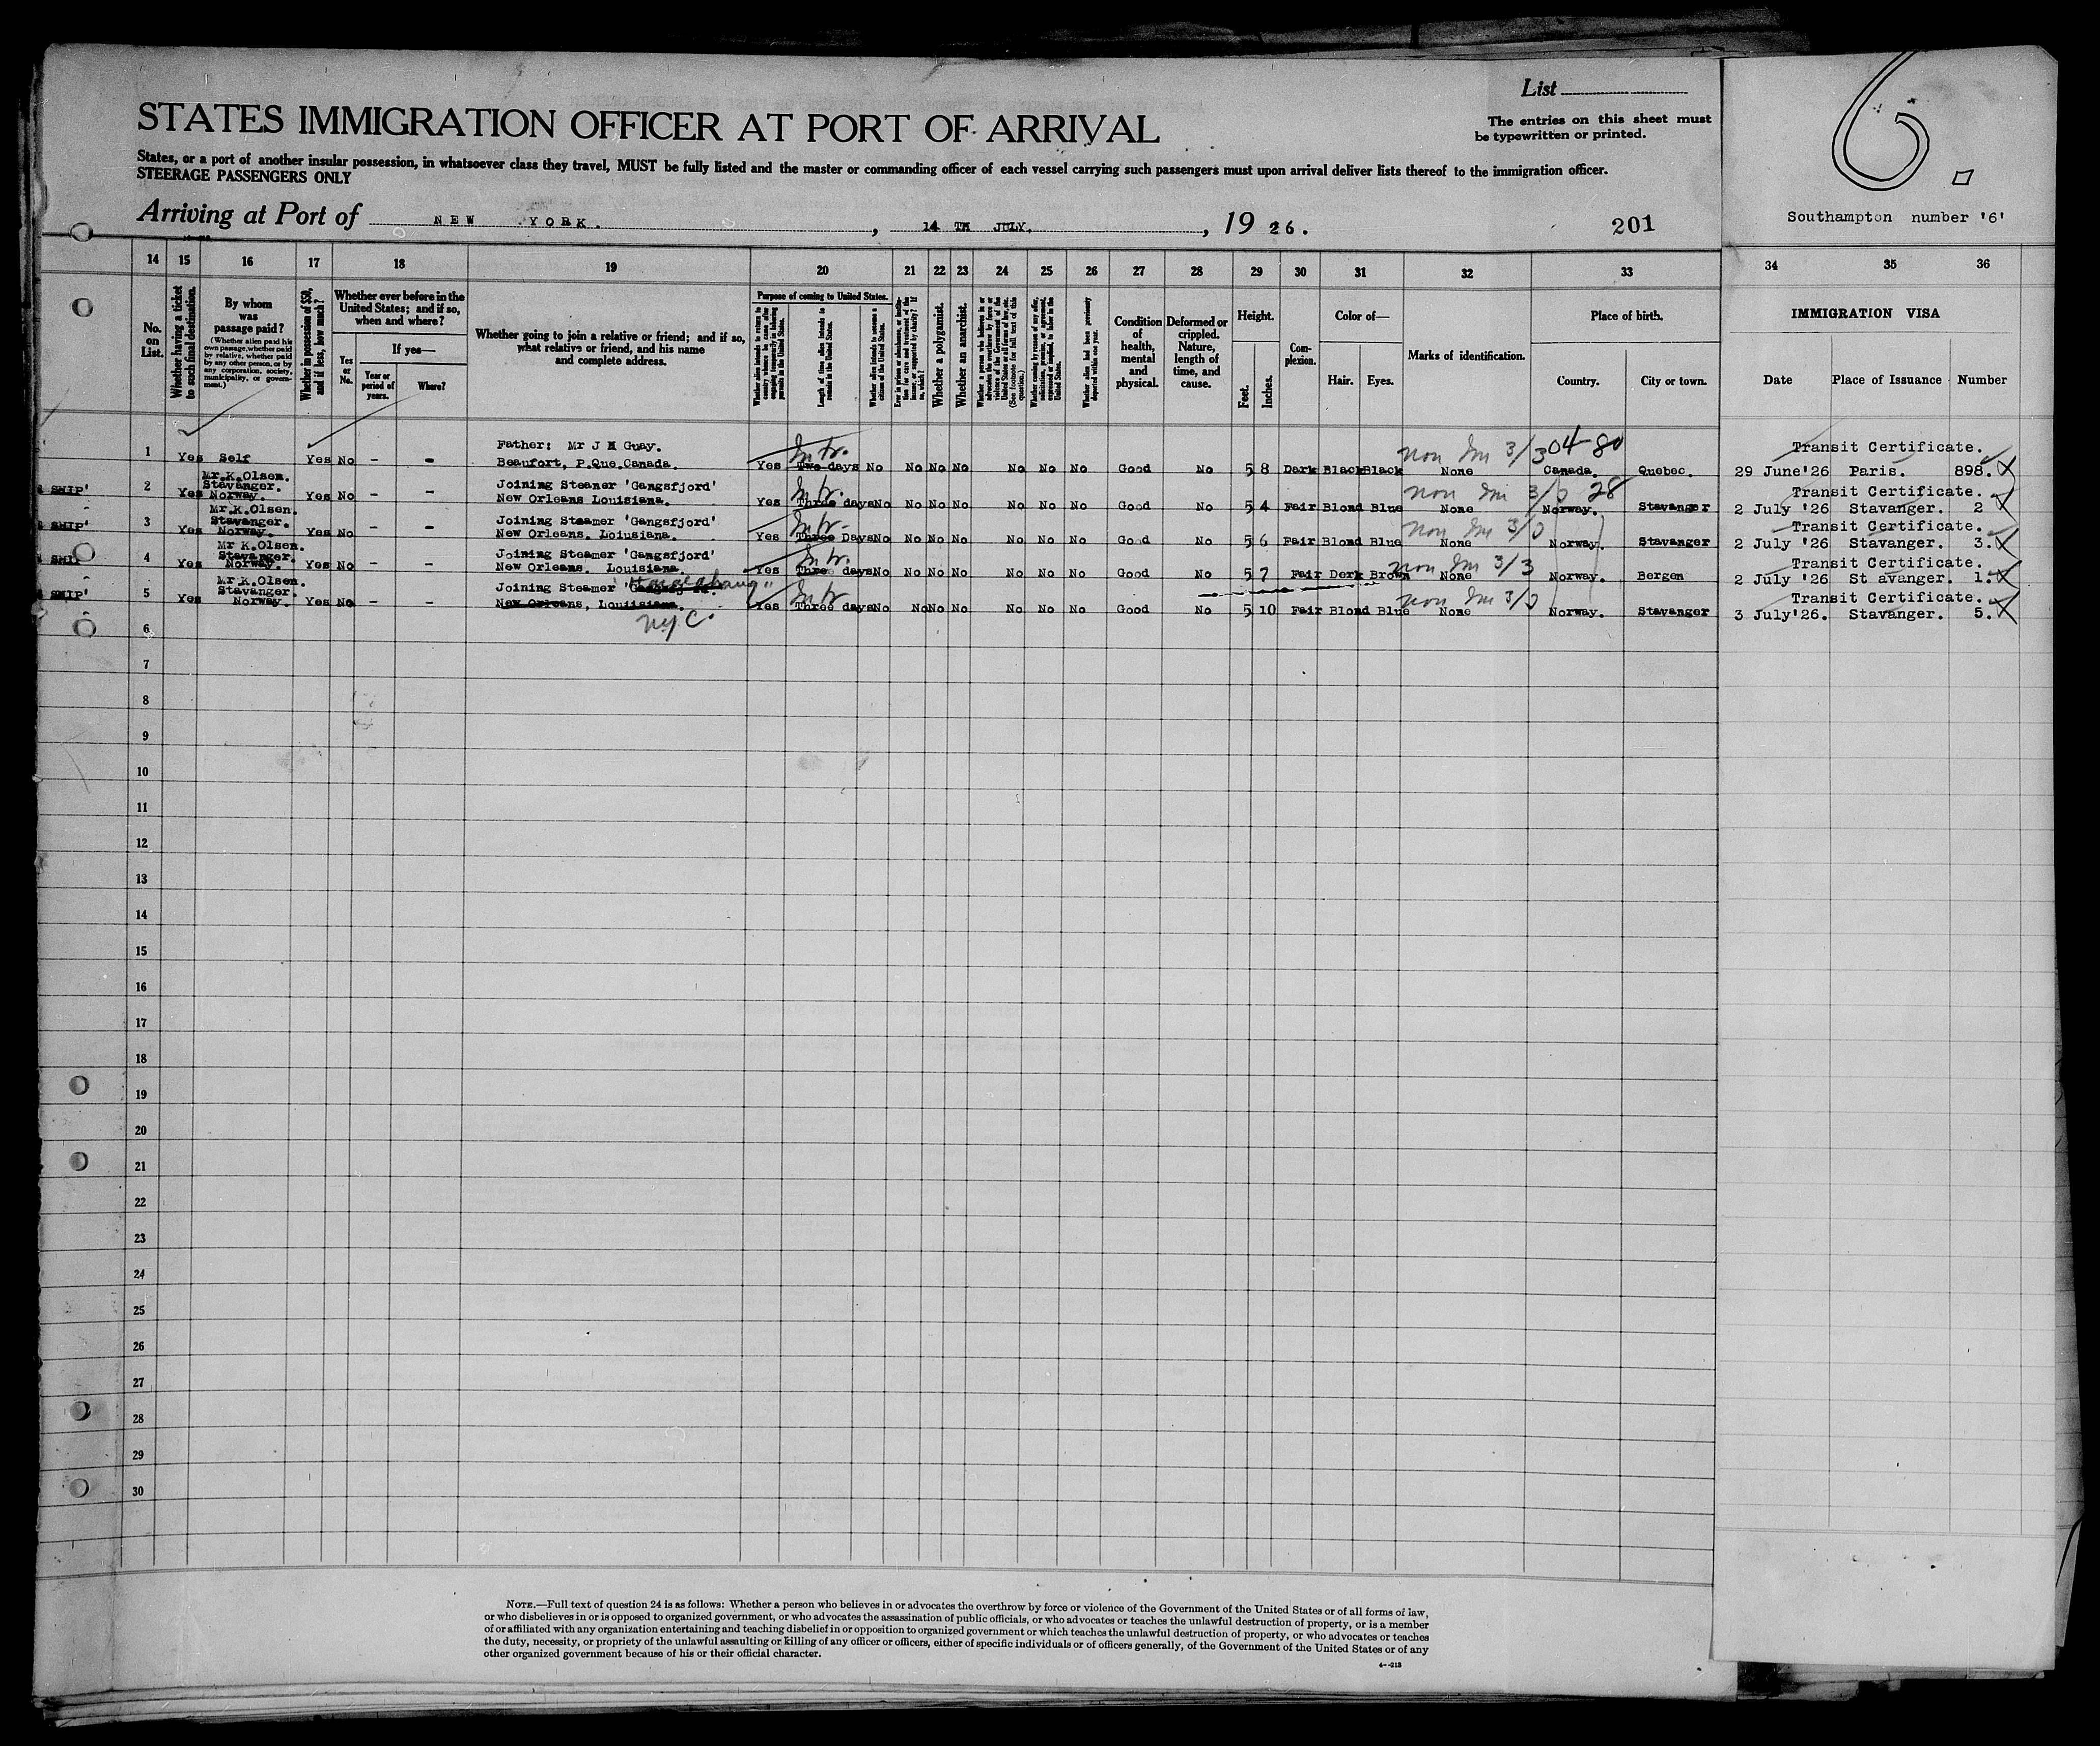 List
STATES IMMIGRATION OFFICER AT PORT OF ARRIVAL
The entries on this sheet must
be typewritten or printed.
States, or a port of another insular possession, in whatsoever class they travel, MUST be fully listed and the master or commanding officer of each vessel carrying such passengers must upon arrival deliver lists thereof to the immigration officer.
STEERAGE PASSENGERS ONLY
Arriving at Port of NEW YORK. , 14 TH JULY. , 19 26.
201
6.
Southampton number '6'
14 15 16 17 18 19 20 21 22 23 24 25 26 27 28 29 30 31 32 33 34 35 36
No. on List.
Whether having a ticket to such final destination.
By whom was passage paid?
(Whether alien paid his own passage, whether paid by relative, whether paid by any other person, or by any corporation, society, municipality, or government.)
Whether in possession of $50, and if less, how much?
Whether ever before in the United States; and if so, when and where?
Yes or No.
If yes—
Year or period of years.
Where?
Whether going to join a relative or friend; and if so, what relative or friend, and his name and complete address.
Purpose of coming to United States.
Length of time alien intends to remain in the United States.
Whether alien intends to become a citizen of the United States.
Whether a polygamist.
Whether an anarchist.
Whether alien had been previously deported within one year.
Condition of health, mental and physical.
Deformed or crippled. Nature, length of time, and cause.
Height.
Feet.
Inches.
Complexion.
Color of—
Hair.
Eyes.
Marks of identification.
Place of birth.
Country.
City or town.
IMMIGRATION VISA
Date
Place of Issuance
Number
Father: Mr J H Guay. Transit Certificate.
1 Yes Self Yes No - - Beaufort, P.Que.Canada. Yes Two days No No No No No No No Good No 5 8 Dark Black Black None Canada. Quebec. 29 June'26 Paris. 898.
Intr. non Im 3/3 04-80
Mr.K.Olsen. Stavanger. Joining Steamer 'Gangsfjord' Transit Certificate.
SHIP' 2 Yes Norway. Yes No - - New Orleans Louisiana. Yes Three days No No No No No No No Good No 5 4 Fair Blond Blue None Norway. Stavanger 2 July '26 Stavanger. 2
Intr. non Im 3/3 28
Mr.K.Olsen. Stavanger. Joining Steamer 'Gangsfjord' Transit Certificate.
SHIP' 3 Yes Norway. Yes No - - New Orleans. Loiusiana. Yes Three Days No No No No No No No Good No 5 6 Fair Blond Blue None Norway. Stavanger 2 July '26 Stavanger. 3.
Intr. non Im 3/3
Mr K.Olsen. Stavanger. Joining Steamer 'Gangsfjord' Transit Certificate.
SHIP' 4 Yes Norway. Yes No - - New Orleans. Louisiana. Yes Three days No No No No No No No Good No 5 7 Fair Derk Brown None Norway. Bergen 2 July '26 St avanger. 1.
Intr. non Im 3/3
Mr.K.Olsen. Stavanger. Joining Steamer Transit Certificate.
SHIP' 5 Yes Norway. Yes No - - New Orleans, Louiisiana. Yes Three days No No No No No No No Good No 5 10 Fair Blond Blue None Norway. Stavanger 3 July'26. Stavanger. 5.
Intr non Im 3/3
NYC.
6
7
8
9
10
11
12
13
14
15
16
17
18
19
20
21
22
23
24
25
26
27
28
29
30
NOTE.—Full text of question 24 is as follows: Whether a person who believes in or advocates the overthrow by force or violence of the Government of the United States or of all forms of law,
or who disbelieves in or is opposed to organized government, or who advocates the assassination of public officials, or who advocates or teaches the unlawful destruction of property, or is a member
of or affiliated with any organization entertaining and teaching disbelief in or opposition to organized government or which teaches the unlawful destruction of property, or who advocates or teaches
the duty, necessity, or propriety of the unlawful assaulting or killing of any officer or officers, either of specific individuals or of officers generally, of the Government of the United States or of any
other organized government because of his or their official character.
4—213